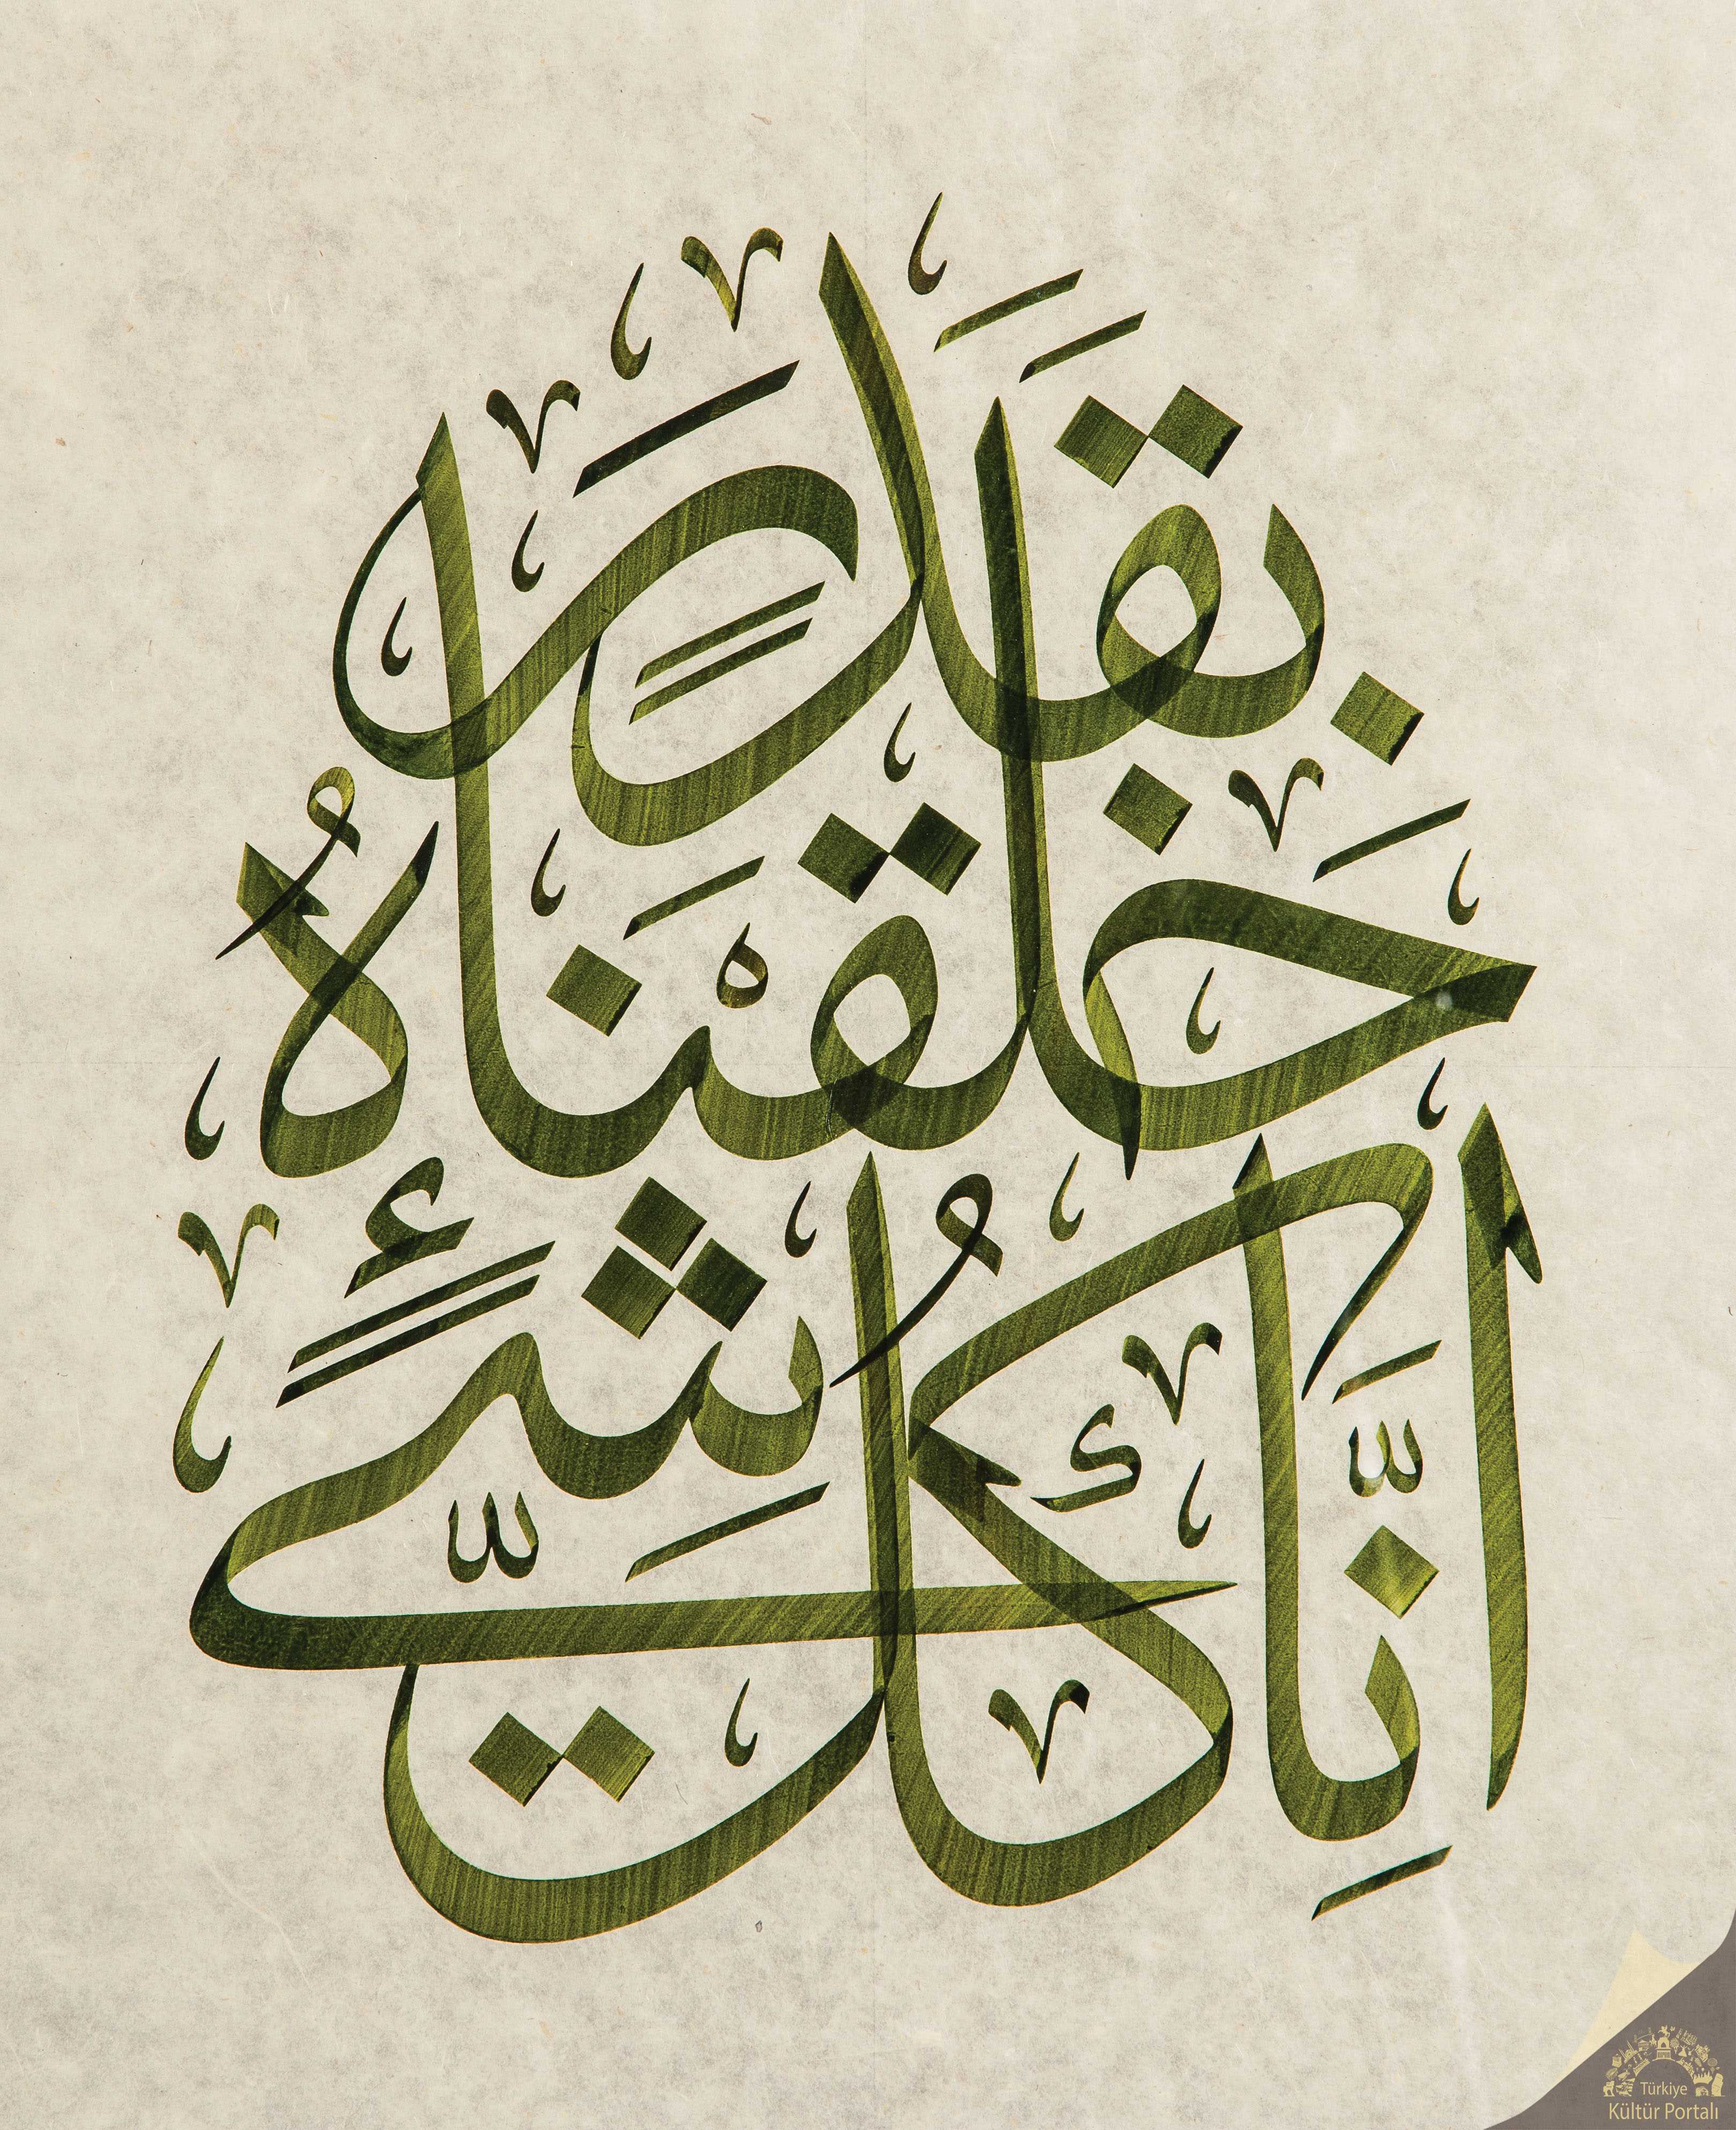 اِنَّا كُلَّ شَيْءٍ
خَلَقْنَاهُ
بِقَدَرٍ
Türkiye
Kültür Portalı